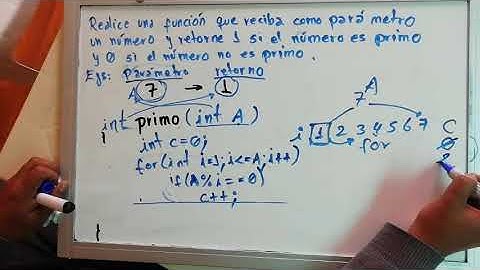 Realice una función que reciba como parámetro
un número y retorne 1 si el número es primo
y 0 si el número no es primo.
Ejs: parámetro retorno
A 7 → 1
int primo (int A)
int c=0;
for(int i=1; i<=A; i++)
if(A%i==0)
c++;
}
A
7
i 1 2 3 4 5 6 7
for
C
0